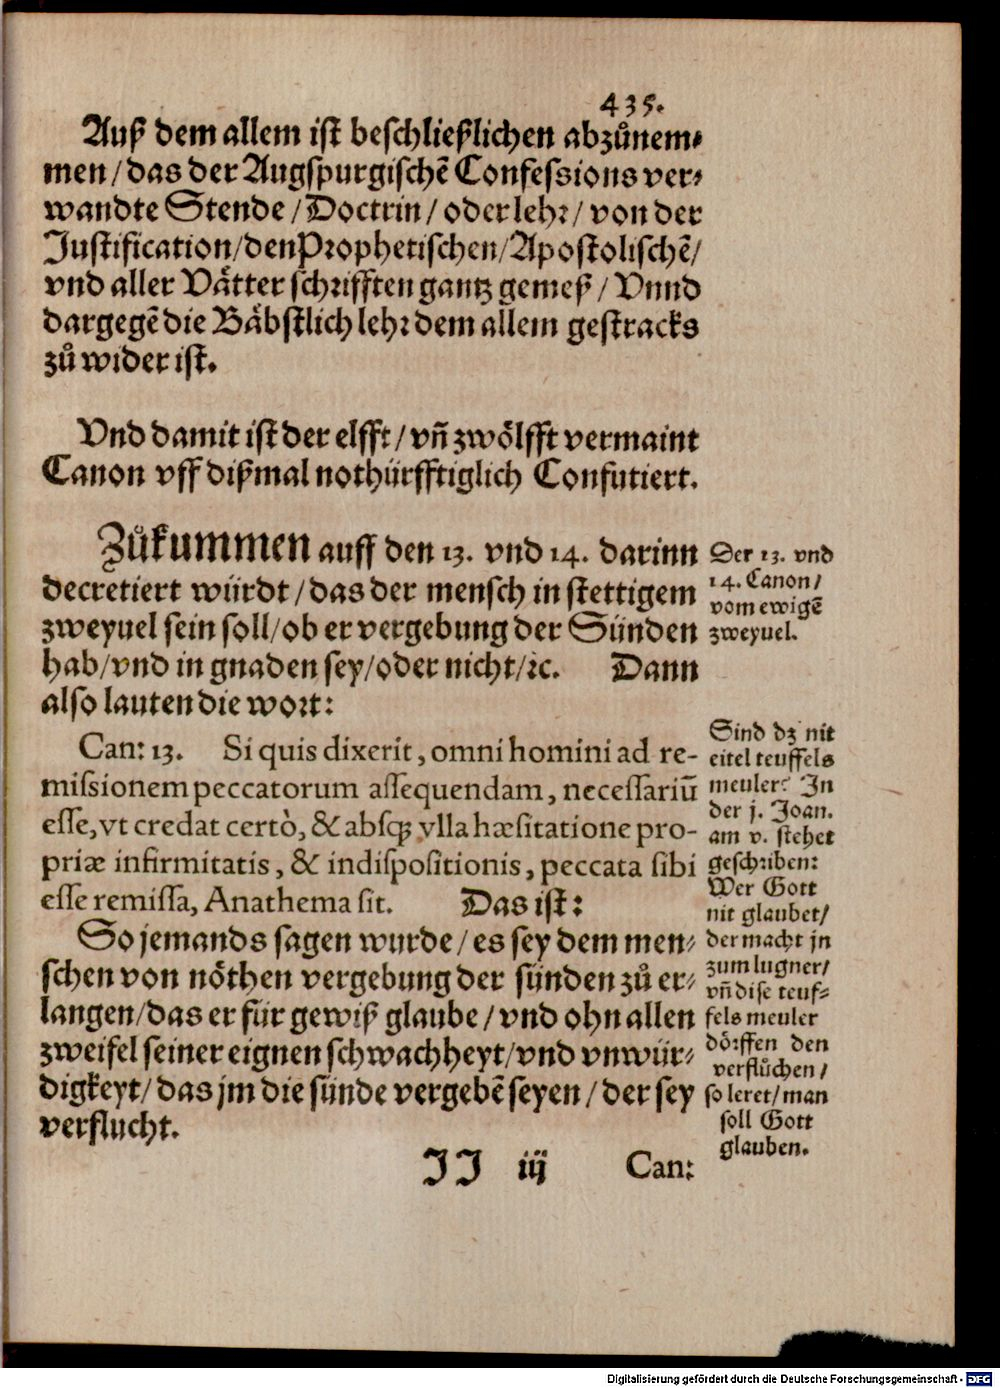 435.
Auß dem allem ist beschließlichen abzůnem⸗
men / das der Augspurgischẽ Confessions ver⸗
wandte Stende / Doctrin / oder lehr / von der
Justification / den Prophetischen / Apostolischẽ /
vnd aller Vätter schrifften gantz gemeß / Vnnd
dargegẽ die Bäbstlich lehr dem allem gestracks
zů wider ist.
Vnd damit ist der elfft / vñ zwölfft vermaint
Canon vff dißmal nothürfftiglich Confutiert.
Zůkummen auff den 13. vnd 14. darinn
decretiert würdt / das der mensch in stettigem
zweyuel sein soll / ob er vergebung der Sünden
hab / vnd in gnaden sey / oder nicht / ꝛc. Dann
also lauten die wort:
Can: 13. Si quis dixerit, omni homini ad re-
missionem peccatorum assequendam, necessariũ
esse, vt credat certò, & absqꝫ vlla hæsitatione pro-
priæ infirmitatis, & indispositionis, peccata sibi
esse remissa, Anathema sit. Das ist:
So jemands sagen wurde / es sey dem men⸗
schen von nöthen vergebung der sünden zů er⸗
langen / das er für gewiß glaube / vnd ohn allen
zweifel seiner eignen schwachheyt / vnd vnwür⸗
digkeyt / das jm die sünde vergebẽ seyen / der sey
verflucht.
JJ iij Can:
Der 13. vnd
14. Canon /
vom ewigẽ
zweyuel.
Sind dz nit
eitel teuffels
meuler? In
der j. Joan.
am v. stehet
geschriben:
Wer Gott
nit glaubet /
der macht jn
zum lugner /
vñ dise teuf⸗
fels meuler
dörffen den
verflůchen /
so leret / man
soll Gott
glauben.
Digitalisierung gefördert durch die Deutsche Forschungsgemeinschaft - DFG